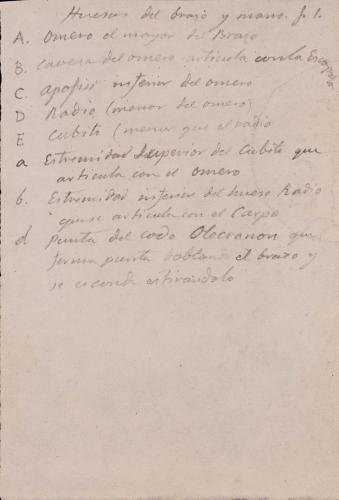 Huesos del brazo y mano. f. 1.
A. Omero el mayor del Brazo
B. Cavesa del omero articula con la Escapula
C. apofisi inferior del omero
D Radio (menor del omero)
E Cubito (menor que el radio
a Estremidad Superior del Cubito que
articula con el omero
b. Estremidad inferior del hueso Radio
que se articula con el Carpo
d punta del codo Olecranon que
forma punta doblando el brazo y
se esconde estirandolo